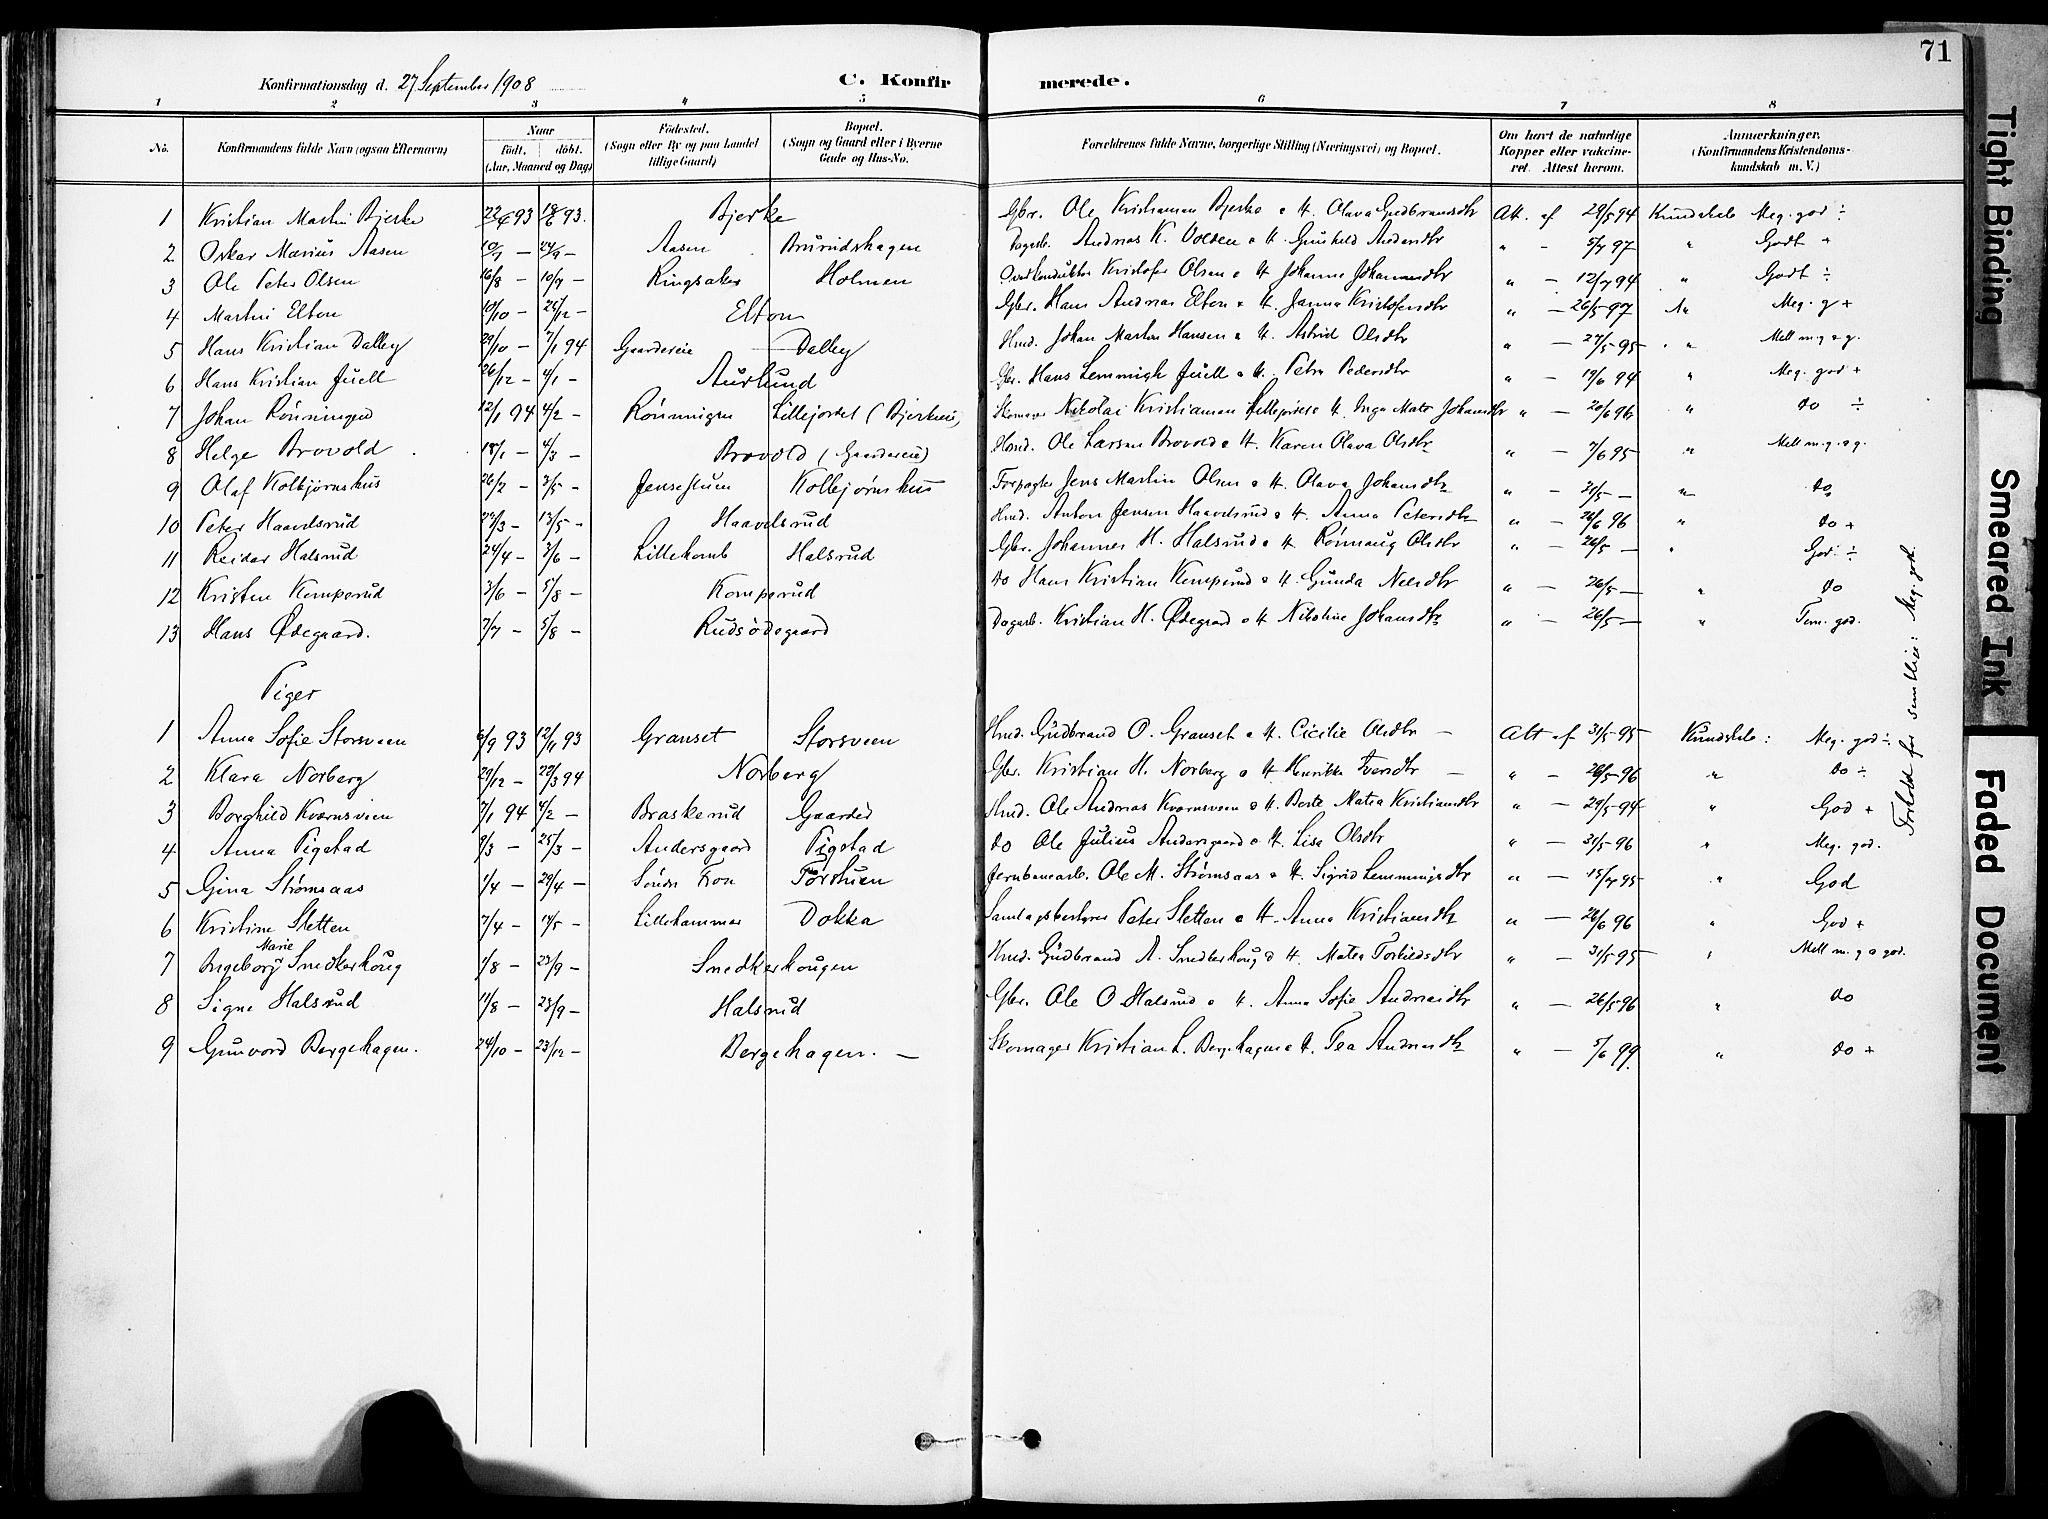 71
Konfirmationsdag d. 27 September 1908 C. Konfirmerede.
1 2 3 4 5 6 7 8
No. Konfirmandens fulde Navn (ogsaa Efternavn) Naar födt, döbt. (Aar, Maaned og Dag) Födested. (Sogn eller By og paa Landet tillige Gaard) Bopæl. (Sogn og Gaard eller i Byerne Gade og Hus-No. Forældrenes fulde Navne, borgerlige Stilling (Næringsvei) og Bopæl. Om havt de naturlige Kopper eller vakcineret. Attest herom. Anmærkninger. (Konfirmandens Kristendomskundskab m. V.)
1 Kristian Martin Bjerke 22/6 93 93. Bjerke Gbr. Ole Kristiansen Bjerke o H. Olava Gudbrandsdtr Att. af 29/5 94 Kundskab Meg. god ÷
2 Oskar Marius Aasen 10/7 — 24/9 — Aasen Brurudshagen Dagarb. Andreas K. Volden o H. Gunhild Andersdtr " - 5/7 97 " Godt +
3 Ole Peter Olsen 16/8 — 10/9 — Ringsaker Holmen Overkonduktør Kristofer Olsen o H. Johanne Johannesdtr " — 12/7 94 " Godt ÷
4 Martin Elton 10/10 — 26/12 — Elton Gbr. Hans Andreas Elton o H. Janna Kristofersdtr " — 26/5 97 " Meg. g +
5 Hans Kristian Dalby 29/10 — 7/1 94 Gaardereie Dalby Hmd. Johan Marton Hansen o H. Astrid Olsdtr " — 27/5 95 " Mell m. g o g.
6 Hans Kristian Juell 26/12 — 4/1 — Aurlund Gbr. Hans Lemmigh Juell o H. Petra Pedersdtr " — 19/6 94 " Meg. god +
7 Johan Rönningen 12/1 94 4/2 — Rönningen Lillejordet (Bjerkeie) Skomager Nikolai Kristiansen Lillejordet o H. Inga Mats Johansdtr " — 20/6 96 " do ÷
8 Helge Brovold 18/1 — 4/3 — Brovold (Gaardereie) Hmd. Ole Larsen Brovold o H. Karen Olava Olsdtr " — 7/6 95 " Mell m. g. o g.
9 Olaf Kolbjørnshus 26/2 — 3/5 — Jensestuen Kolbjørnshus Forpagter Jens Martin Olsen o H. Olava Johansdtr " — 31/5 — " do
10 Peter Haavelsrud 23/3 — 13/5 — Haavelsrud Hmd. Anton Jensen Haavelsrud o H. Anna Petersdtr " — 26/6 96 " do +
11 Reidar Halsrud 24/4 — 3/6 — Lillekomb Halsrud Gbr. Johannes H. Halsrud o H. Rönnaug Olsdtr " — 26/5 — " God ÷
12 Kristen Kemperud 3/6 — 5/8 — Komperud do Hans Kristian Kemperud o H. Gunda Nilsdtr " — 26/5 — " do
13 Hans Ødegaard. 7/7 — 5/8 — Rudsödegaard Dagarb. Kristian H. Ødegaard o H. Nikoline Johansdtr " — 26/5 — " Tem. god.
Piger
1 Anna Sofie Storsveen 6/9 93 12/11 93 Granset Storsveen Hmd. Gudbrand O. Granset o H. Cicilie Olsdtr — Att af 31/5 95 Kundskab: Meg. god ÷
2 Klara Norberg 29/12 — 22/3 94 Norberg Gbr. Kristian H. Norberg o H. Henrikke Iversdtr — " — 26/5 96 " do ÷
3 Borghild Kværnsveen 7/1 94 4/2 — Braskerud Gaarder Hmd. Ole Andreas Kværnsveen o H. Berte Matea Kristiansdtr " — 29/5 94 " God +
4 Anna Pigstad 9/3 — 25/3 — Andersgaard Pigstad do Ole Julius Andersgaard o H. Lisa Olsdtr " — 31/5 96 " Meg. god.
5 Gina Strømsaas 1/4 — 29/4 — Söndr Fron Forstuen Jernbanearb. Ole M. Strømsaas o H. Sigrid Lemmingsdtr " — 15/7 95 " God
6 Kristine Sletten 7/4 — 14/5 — Lillehammer Dokka Samlagsbestyrer Peter Sletten o H. Anna Kristiansdtr " — 26/6 96 " God +
7 Ingeborg Marie Snedkerhoug 1/8 — 23/9 — Snedkerhougen Hmd. Gudbrand A. Snedkerhoug o H. Matea Torkildsdtr " — 31/5 95 " Mell m. g o god.
8 Signe Halsrud 11/8 — 23/9 — Halsrud Gbr. Ole O Halsrud o H. Anna Sofie Andreasdtr " — 26/5 96 " do
9 Gunvord Bergehagen. 24/10 — 23/12 — Bergehagen. — Skomager Kristian L. Bergehagen o H. Tea Andreasdtr " — 5/6 99. " do +
Forhold for samtlige: Meg. god.
Tight Binding
Smeared Ink
Faded Document